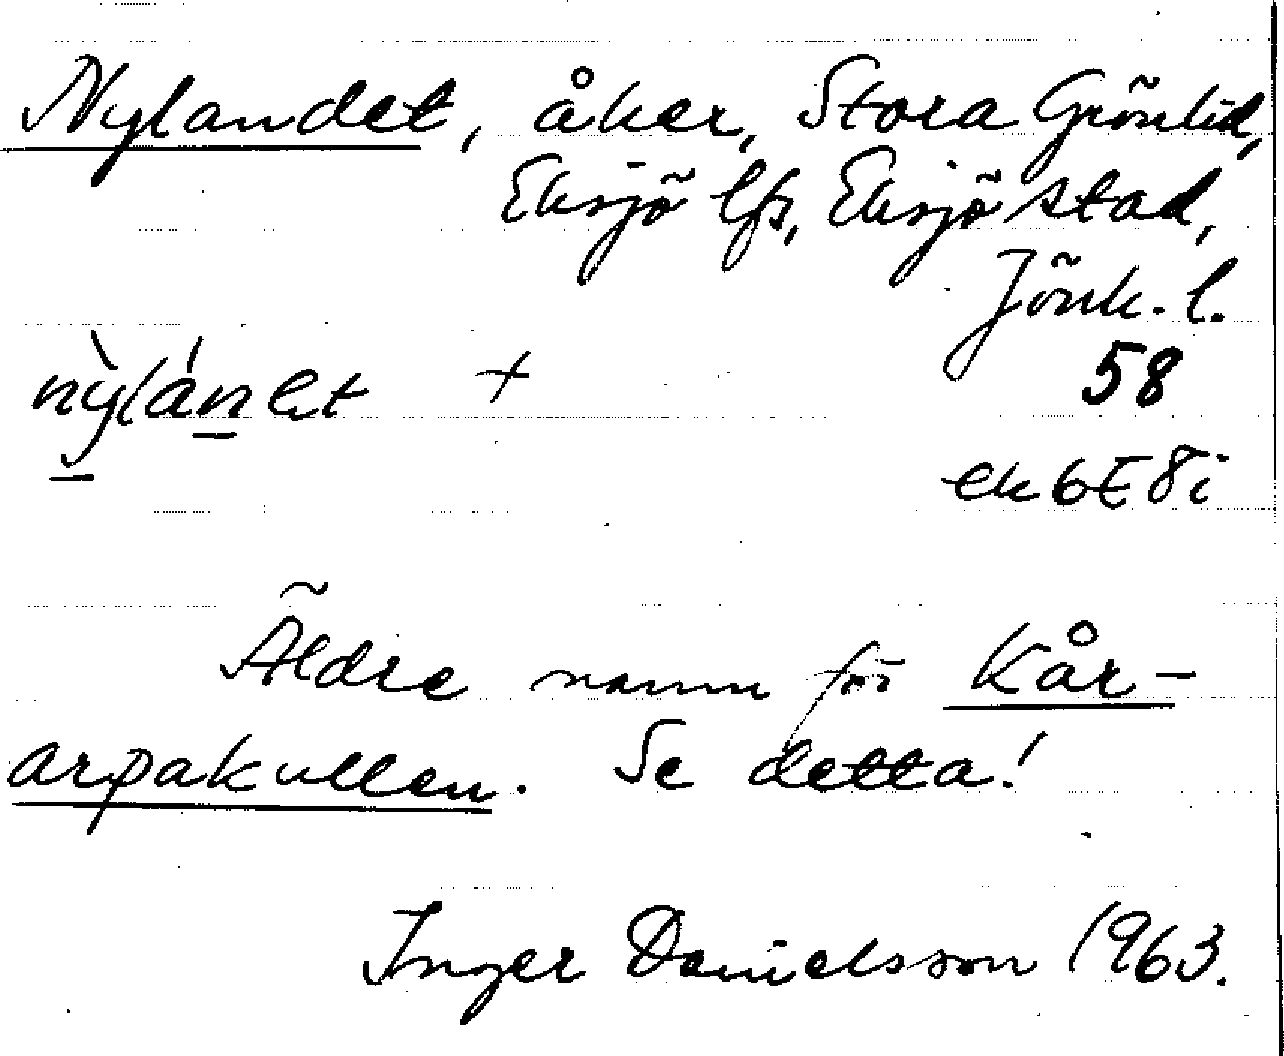 Nylandet, åker, Stora Grönlid,
Eksjö lfs, Eksjö stad,
Jönk. l.
nỳlánet + 58
ek 6E 8i
Äldre namn för Kår-
arpakullen. Se detta!
Inger Danielsson 1963.